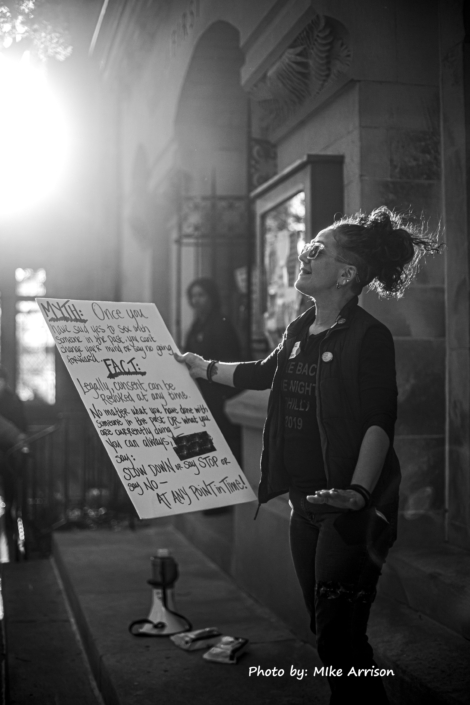 MYTH: Once you
have said yes to sex with
someone in the past, you can't
change your mind or say no going
forward.
FACT:
Legally, consent can be
Revoked at any time.
No matter what you have done with
Someone in the past OR what you
are currently doing
You can always
say:
SLOW DOWN or say STOP or
say NO—
AT ANY POINT in Time!
E BAC
E NIGHT
PHILLY
2019
Photo by: MIke Arrison